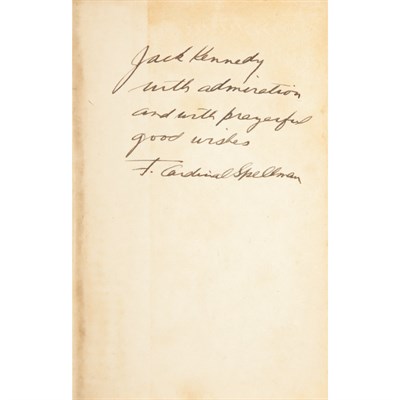 Jack Kennedy
with admiration
and with prayerful
good wishes
F. Cardinal Spellman